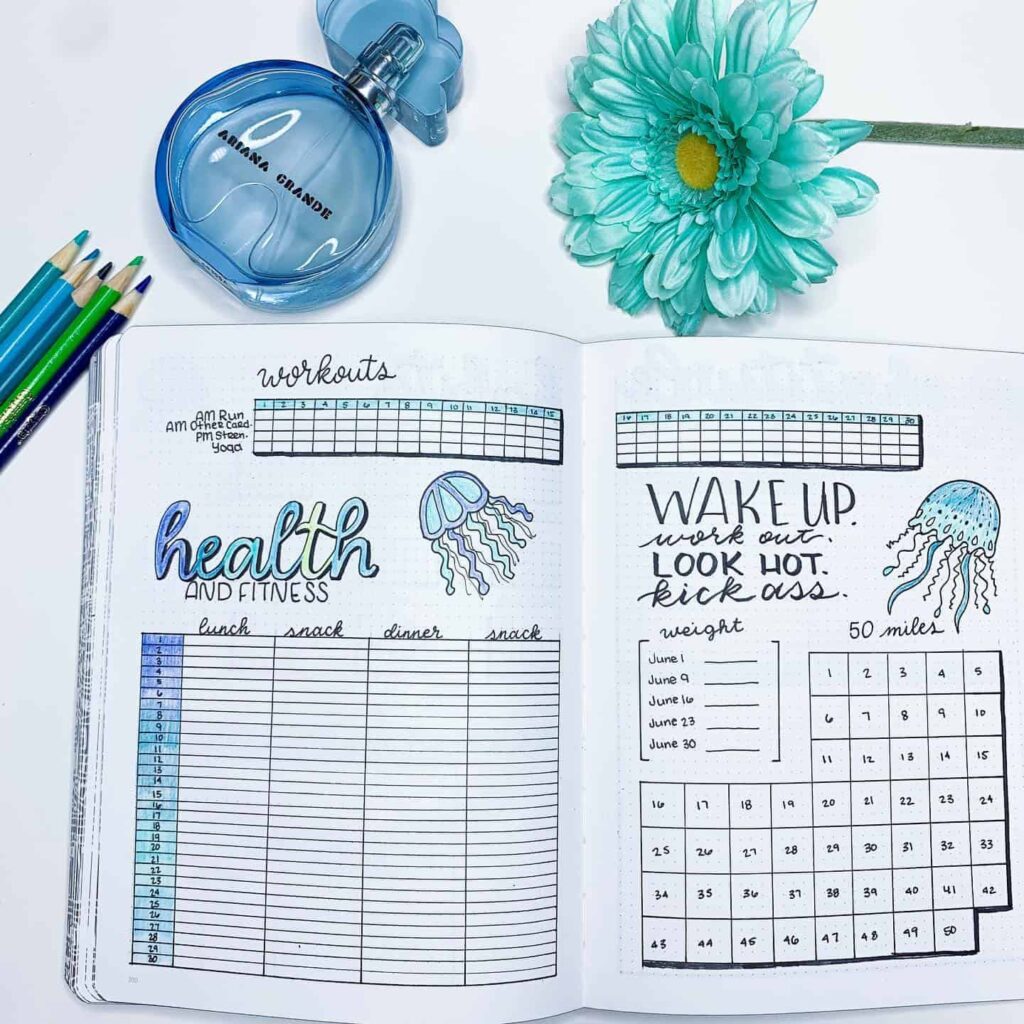 ARIANA GRANDE
workouts
1 2 3 4 5 6 7 8 9 10 11 12 13 14 15
AM Run
AM Other Card.
PM Stren.
Yoga
health
AND FITNESS
lunch snack dinner snack
1
2
3
4
5
6
7
8
9
10
11
12
13
14
15
16
17
18
19
20
21
22
23
24
25
26
27
28
29
30
16 17 18 19 20 21 22 23 24 25 26 27 28 29 30
WAKE UP.
work out.
LOOK HOT.
kick ass.
weight
June 1
June 9
June 16
June 23
June 30
50 miles
1 2 3 4 5
6 7 8 9 10
11 12 13 14 15
16 17 18 19 20 21 22 23 24
25 26 27 28 29 30 31 32 33
34 35 36 37 38 39 40 41 42
43 44 45 46 47 48 49 50